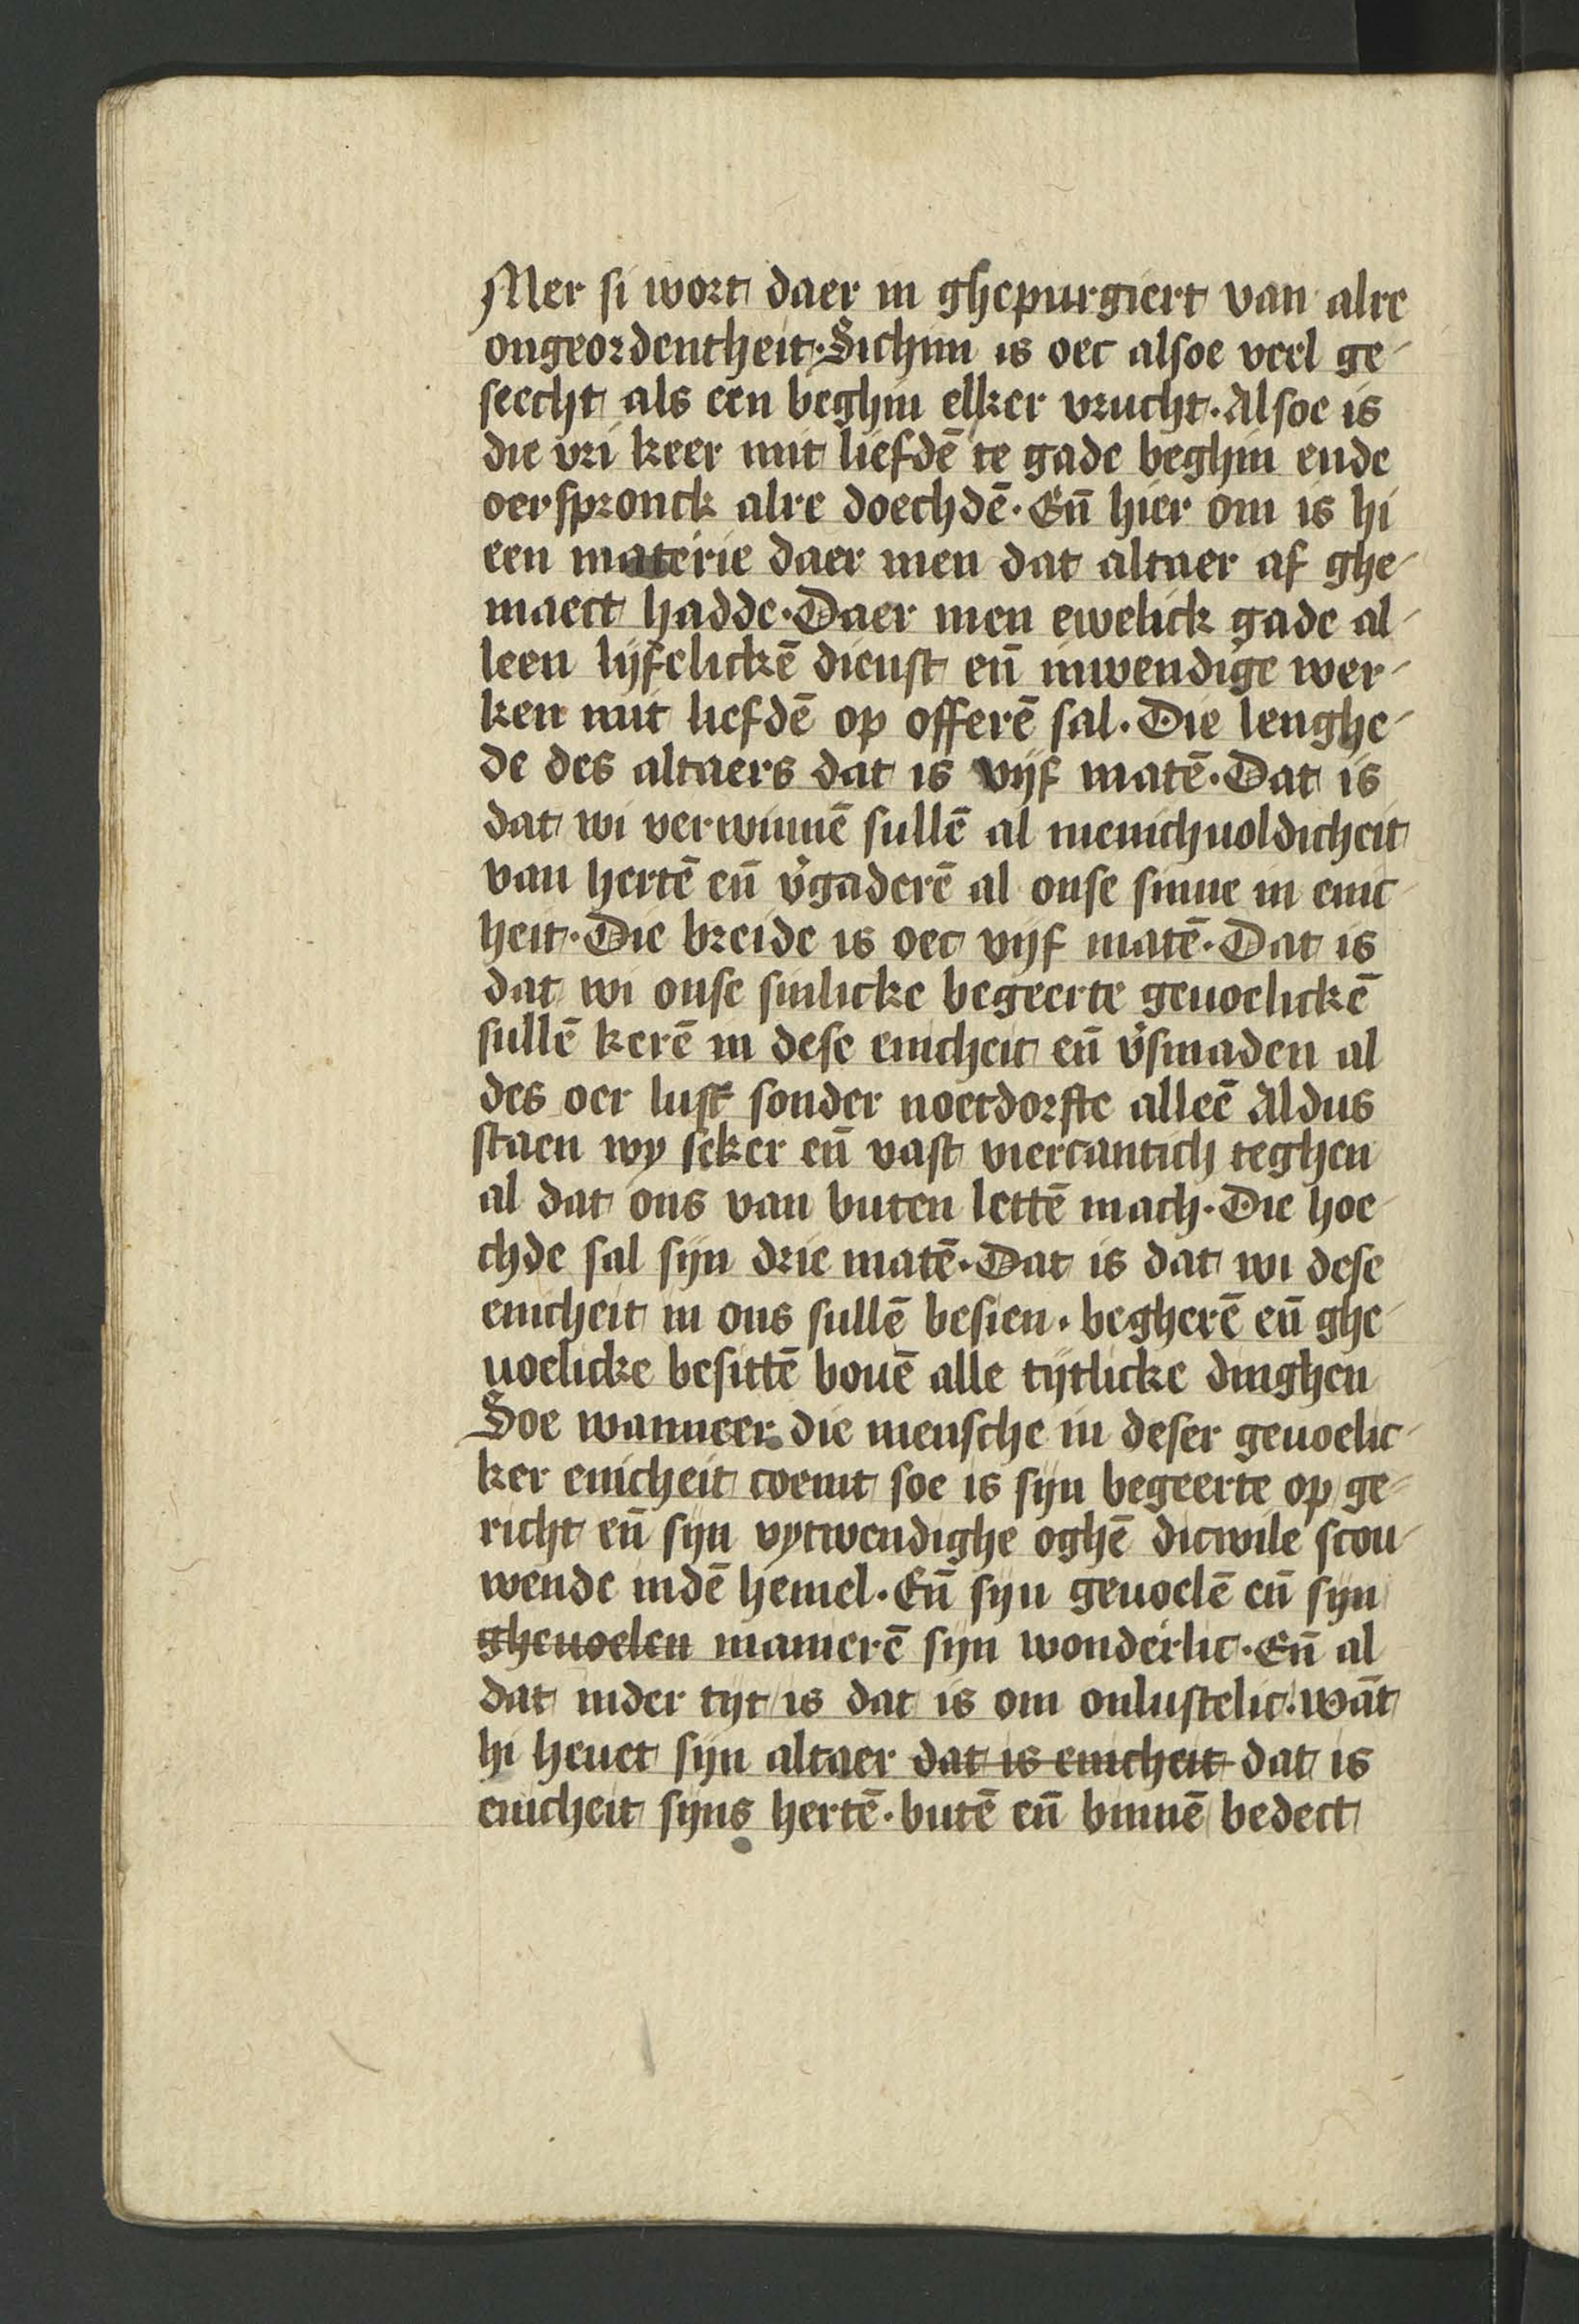 Mer si wort daer in ghepurgiert van alre
ongeordentheit. Sichim is oec alsoe veel ge-
seecht als een beghin elker vrucht. Alsoe is
die vri keer mit liefdē te gade beghin ende
oerspronck alre doechdē. Eñ hier om is hi
een materie daer men dat altaer af ghe-
maect hadde. Daer men ewelick gade al-
leen lijfelickē dienst eñ inwendige wer-
ken mit liefdē op offerē sal. Die lenghe-
de des altaers dat is vijf matē. Dat is
dat wi verwinnē sullē al menichuoldicheit
van hertē eñ v̉gaderē al onse sinne in enic-
heit. Die breide is oec vijf matē. Dat is
dat wi onse sinlicke begeerte geuoelickē
sullē kerē in dese enicheit eñ v̉smaden al
des oer lust sonder noetdorfte alleē Aldus
staen wy seker eñ vast viercantich teghen
al dat ons van buten lettē mach. Die hoe-
chde sal sijn drie matē. Dat is dat wi dese
enicheit in ons sullē besien. begherē eñ ghe-
uoelicke besittē bouē alle tijtlicke dinghen
Soe wanneer die mensche in deser geuoelic-
ker enicheit coemt soe is sijn begeerte op ge-
richt eñ sijn vytwendighe oghē dicwile scou-
wende indē hemel. Eñ sijn geuoelē eñ sijn
gheuoelen manierē sijn wonderlic. Eñ al
dat inder tijt is dat is om onlustelic. wāt
hi heuet sijn altaer dat is enicheit dat is
enicheit sijns hertē. butē eñ binnē bedect